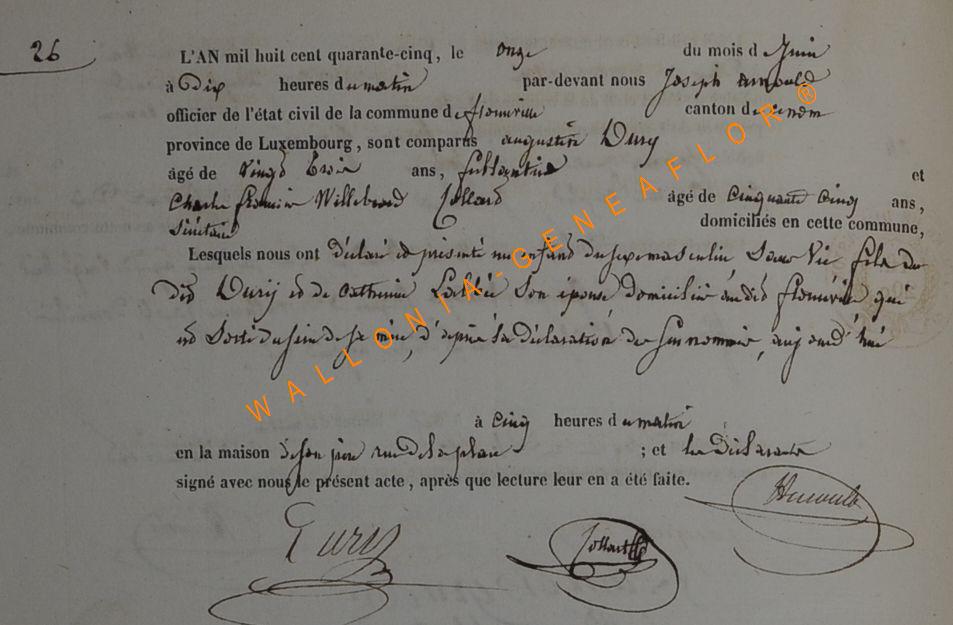 26
L'AN mil huit cent quarante-cinq, le onze du mois d e Juin
à Dix heures du matin par-devant nous Joseph Arnould
officier de l'état civil de la commune de florenville canton d
province de Luxembourg, sont comparus augustin Dury
âgé de Vingt trois ans, et
Charles Willebrord Collard âgé de Cinquante Cinq ans,
domiciliés en cette commune,
Lesquels nous ont déclaré et présenté un enfant du sexe masculin, Sans Vie fils du
dit Dury et de Catherine Son épouse domiciliés audit florenville qui
est sorti du sein de sa mère, d'après la déclaration du susnommé, aujourd'hui
à Cinq heures du matin
en la maison de son père rue de la place ; et les déclarants
signé avec nous le présent acte, après que lecture leur en a été faite.
Dury Collard Arnould
WALLONIA-GENEAFLOR®